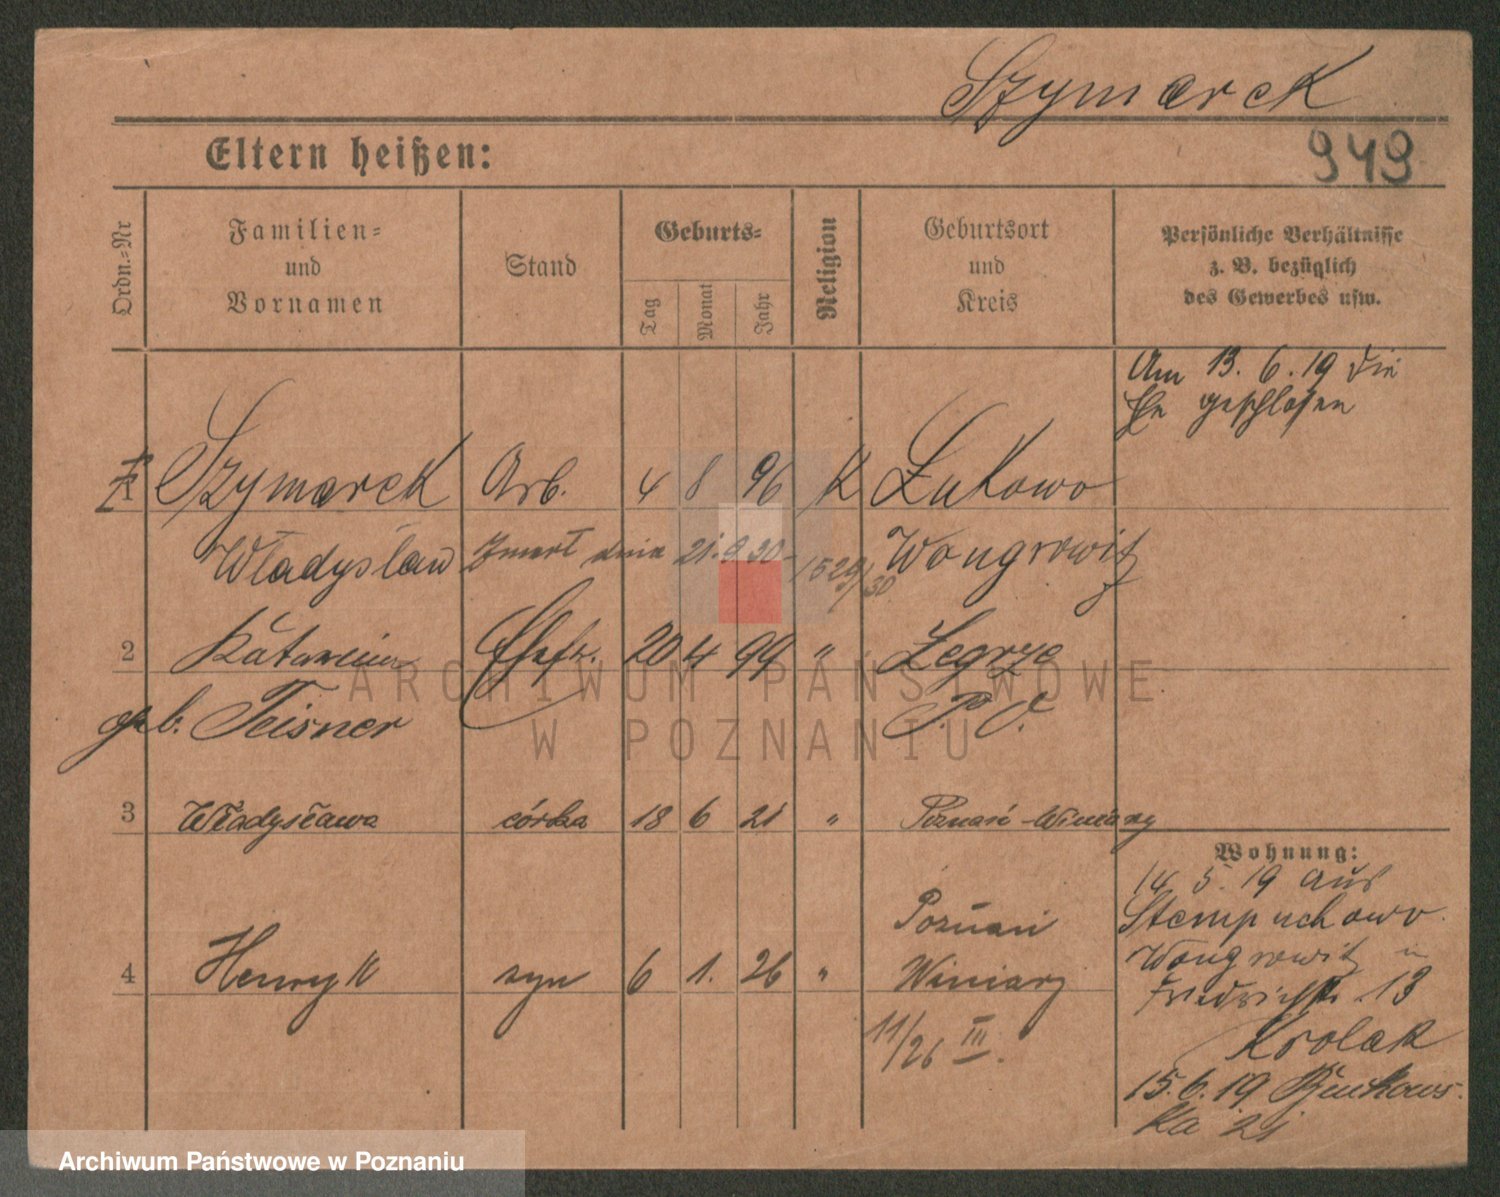 Szymarek
949
Eltern heißen:
Ordn.-Nr
Familien-
und
Vornamen
Stand
Geburts-
Tag
Monat
Jahr
Religion
Geburtsort
und
Kreis
Persönliche Verhältnisse
z. B. bezüglich
des Gewerbes usw.
Am 13. 6. 19 die
geschlossen
1 Szymarek Arb. 4 8 96 K Łukowo
Władysław Zmarł dnia 21.9 30 - 1529/30 Wongrowitz
2 Katarzina Ehefr. 20 4 99 " Zegrze
geb. Teisner P. O.
3 Władysława córka 18 6 21 " Poznań-Winiary
Wohnung:
14 5. 19 aus
Stempuchowo
Poznań
Wongrowitz n
4 Henryk syn 6 1. 26 " Winiary
Friedrichstr. 13
11/26 III.
Krolak
15. 6. 19
ka 21
ARCHIWUM PAŃSTWOWE
W POZNANIU
Archiwum Państwowe w Poznaniu